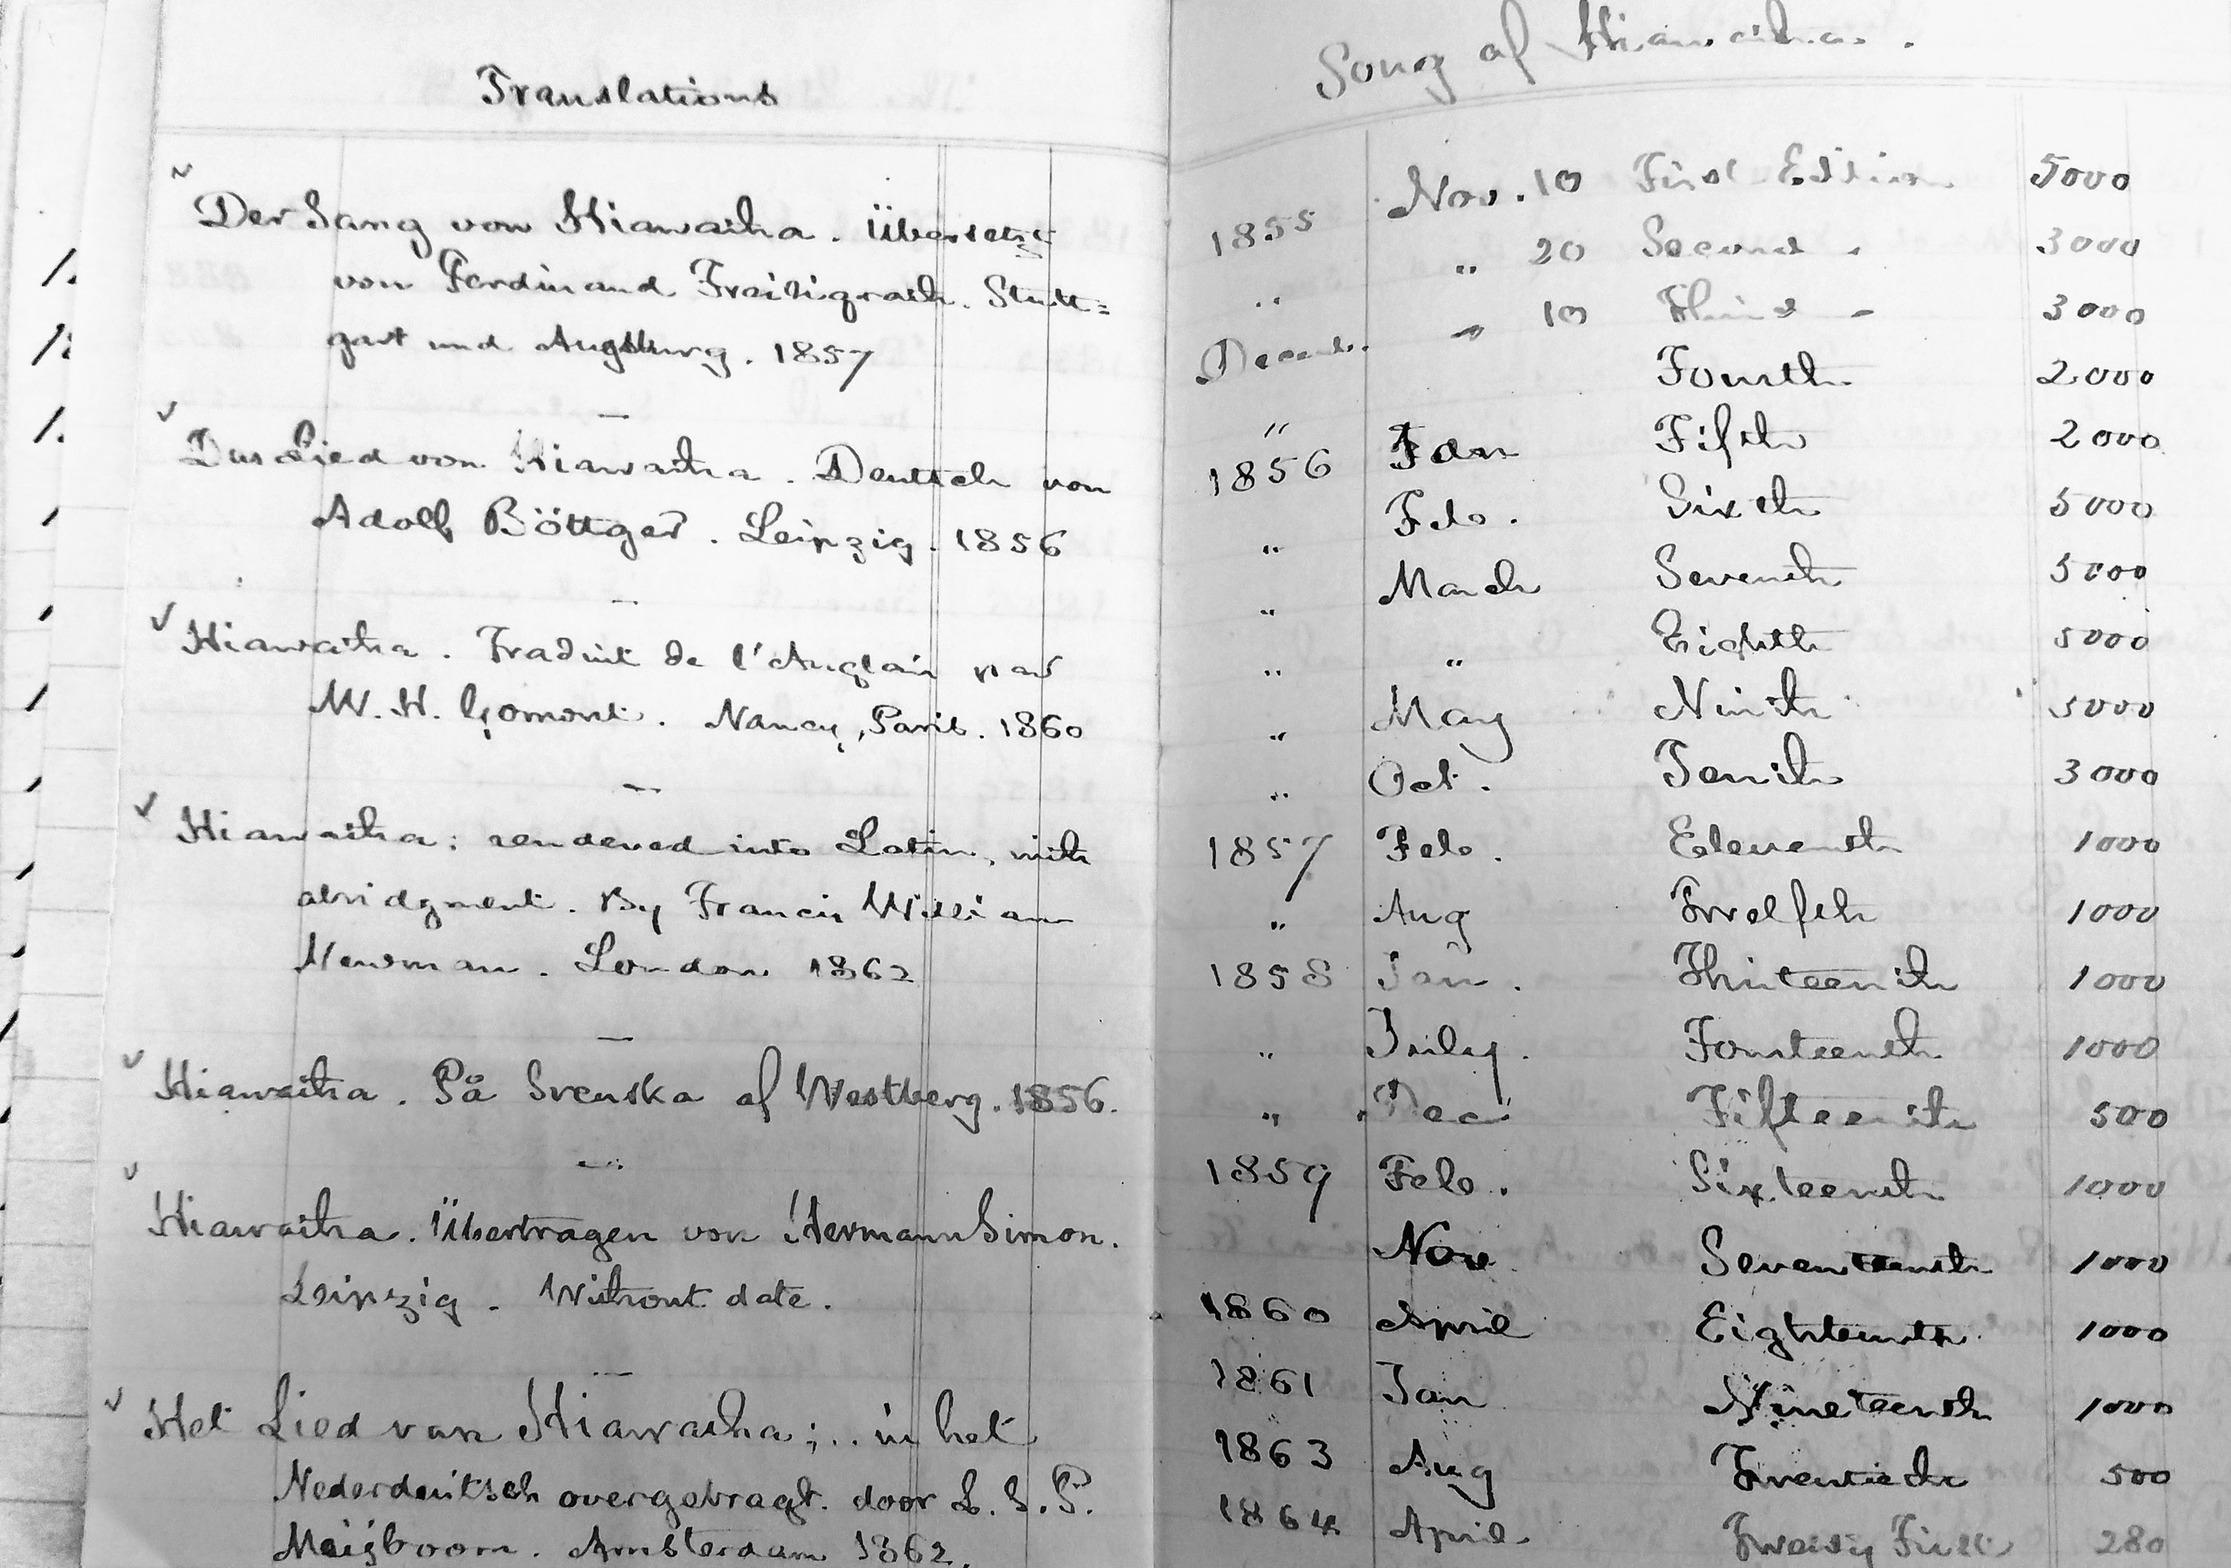 Translations
Der Sang von Hiawatha. Übersetzt
von Ferdinand Freiligrath. Stutt=
gart und Augsburg. 1857
Das Lied von Hiawatha. Deutsch von
Adolf Böttger. Leipzig. 1856
Hiawatha. Traduit de l'Anglais par
M. H. Gomont. Nancy, Paris. 1860
Hiawatha: rendered into Latin, with
abridgment. By Francis William
Newman. London 1862
Hiawatha. På Svenska af Westberg. 1856.
Hiawatha. Übertragen von Hermann Simon.
Leipzig. Without date.
Het Lied van Hiawatha; .. in het
Nederduitsch overgebragt door L. S. P.
Meijboom. Amsterdam 1862.
Song of Hiawatha.
1855 Nov. 10 First Edition 5000
" " 20 Second " 3000
Decemb. " 10 Third " 3000
" Fourth 2000
1856 Jan Fifth 2000
" Feb. Sixth 5000
" March Seventh 5000
" " Eighth 5000
" May Ninth 5000
" Oct. Tenth 3000
1857 Feb. Eleventh 1000
" Aug Twelfth 1000
1858 Jan. Thirteenth 1000
" July. Fourteenth 1000
" Dec Fifteenth 500
1859 Feb. Sixteenth 1000
Nov Seventeenth 1000
1860 April Eighteenth 1000
1861 Jan Nineteenth 1000
1863 Aug Twentieth 500
1864 April Twenty First 280